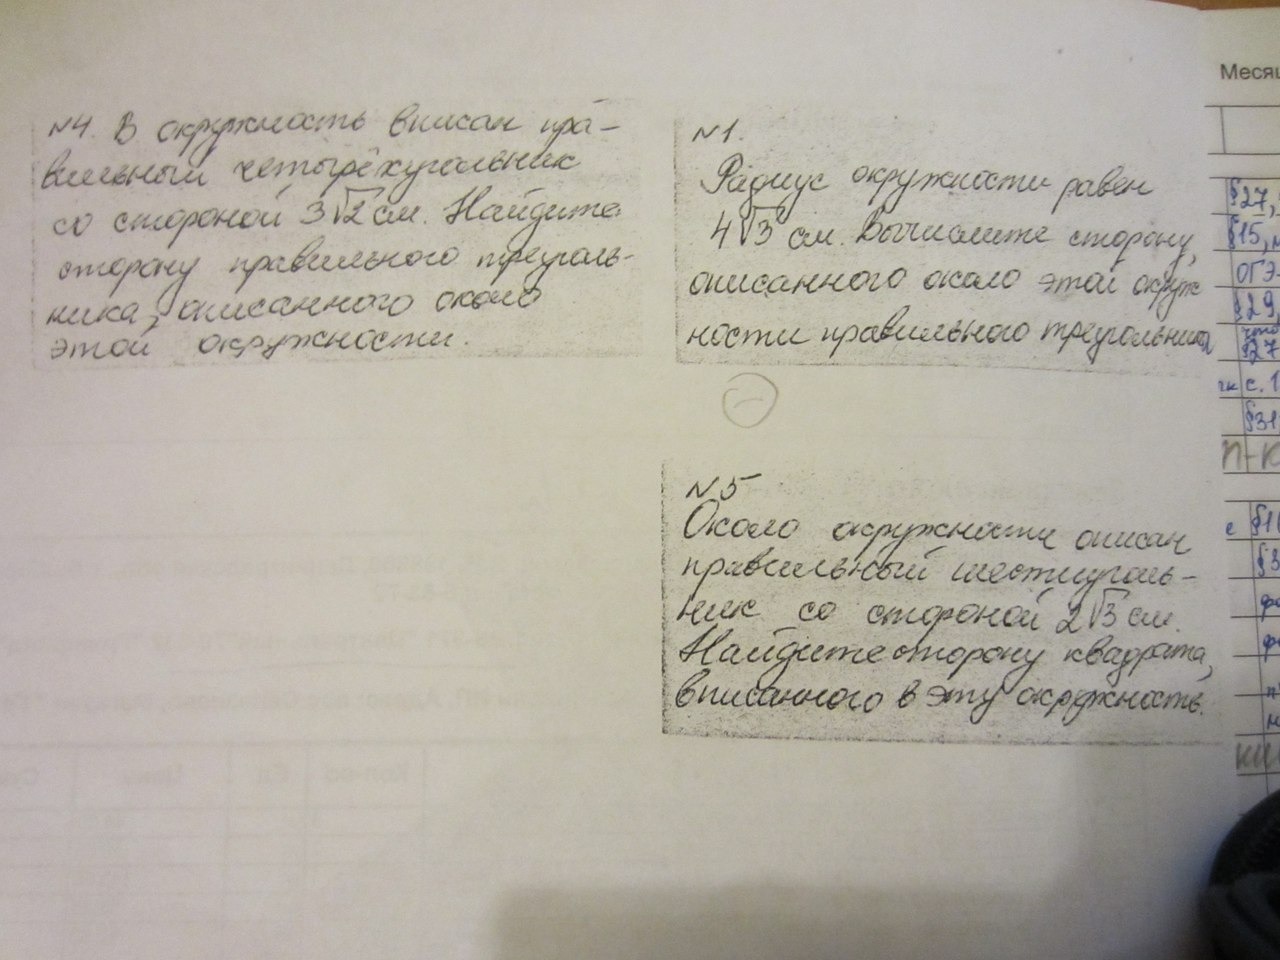 №4. В окружность вписан пра-
вильный четырёхугольник
со стороной 3√2 см. Найдите
сторону правильного треуголь-
ника, описанного около
этой окружности.
№1.
Радиус окружности равен
4√3 см. Вычислите сторону,
описанного около этой окруж
ности правильного треугольника
№5
Около окружности описан
правильный шестиуголь-
ник со стороной 2√3 см.
Найдите сторону квадрата,
вписанного в эту окружность.
Месяц
§27,
§15, 
ОГЭ-
§29,
§27
с. 1
§31
п-к